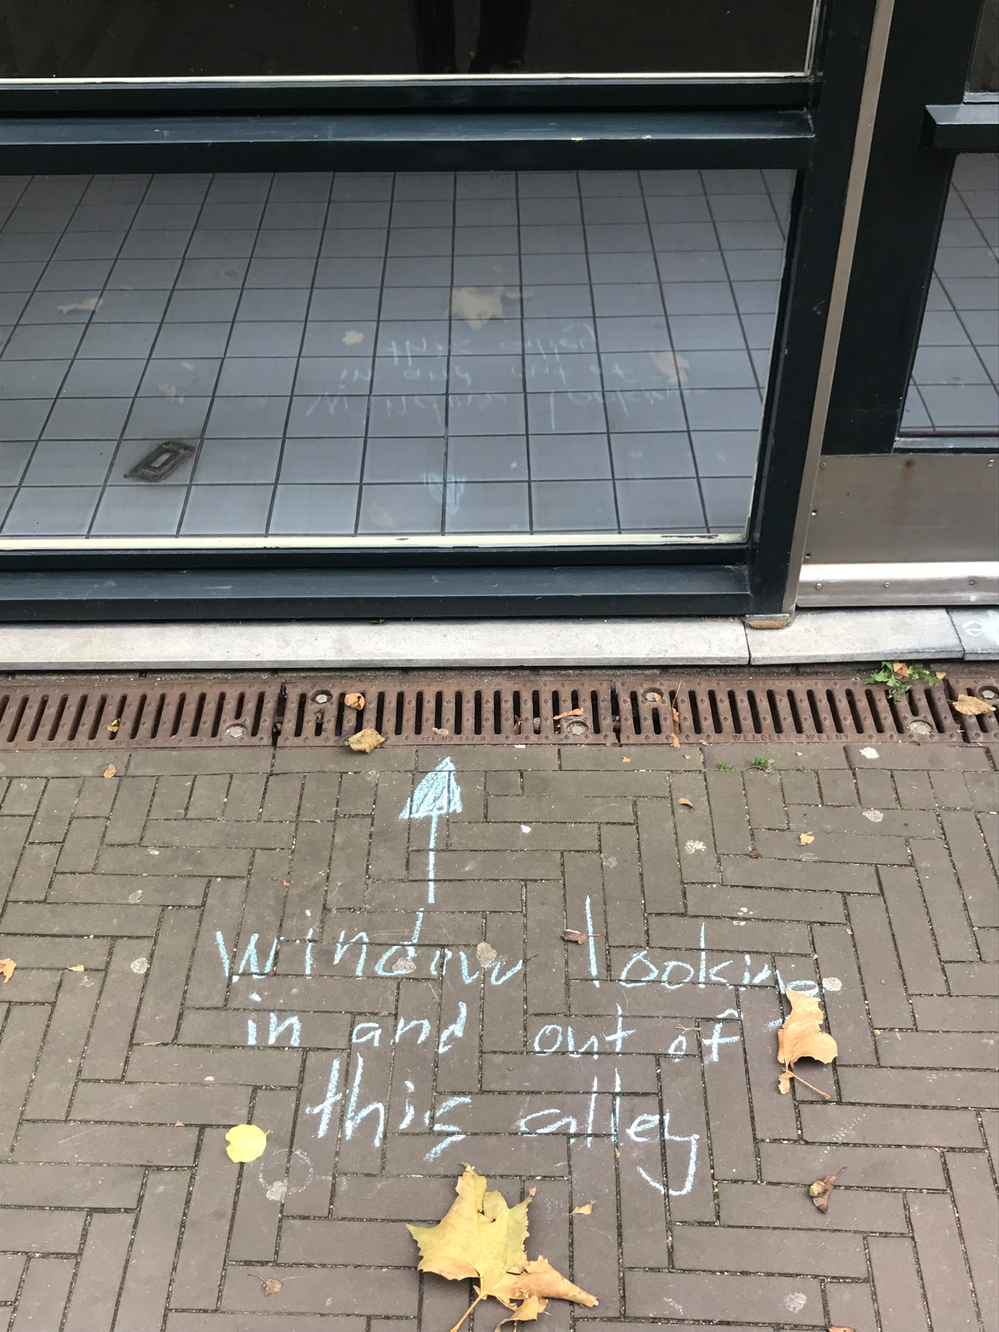 window looking
in and out of
this alley